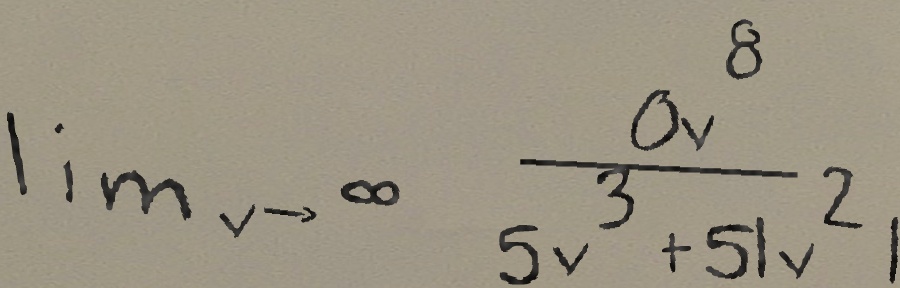 lim_{v→∞} \frac{0v^8}{5v^3+51v^2 1}